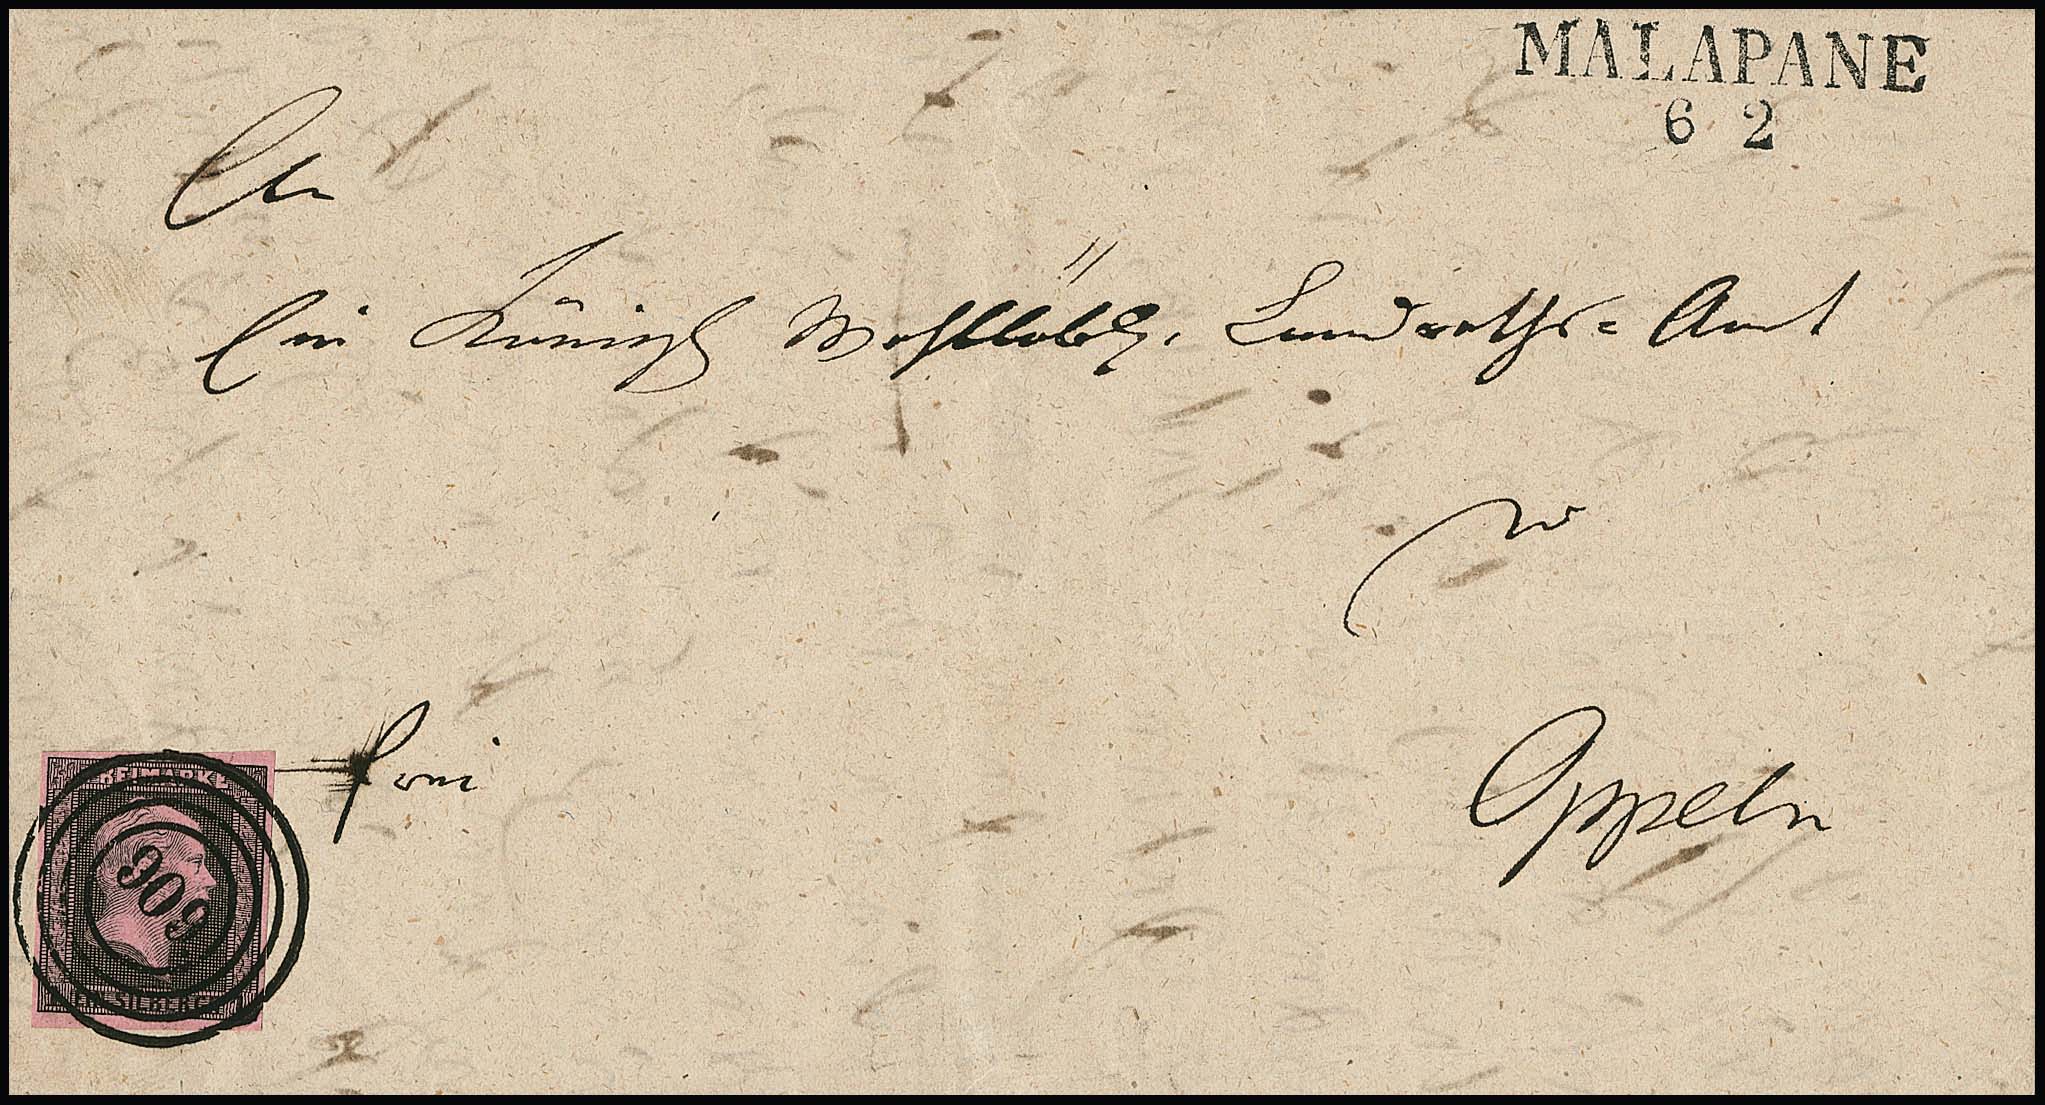 MALAPANE
6 2
An
Ein Königl Wohllöbl. Landraths-Amt
zu
Oppeln
frei
FREIMARKE
909
EIN SILBERGR.